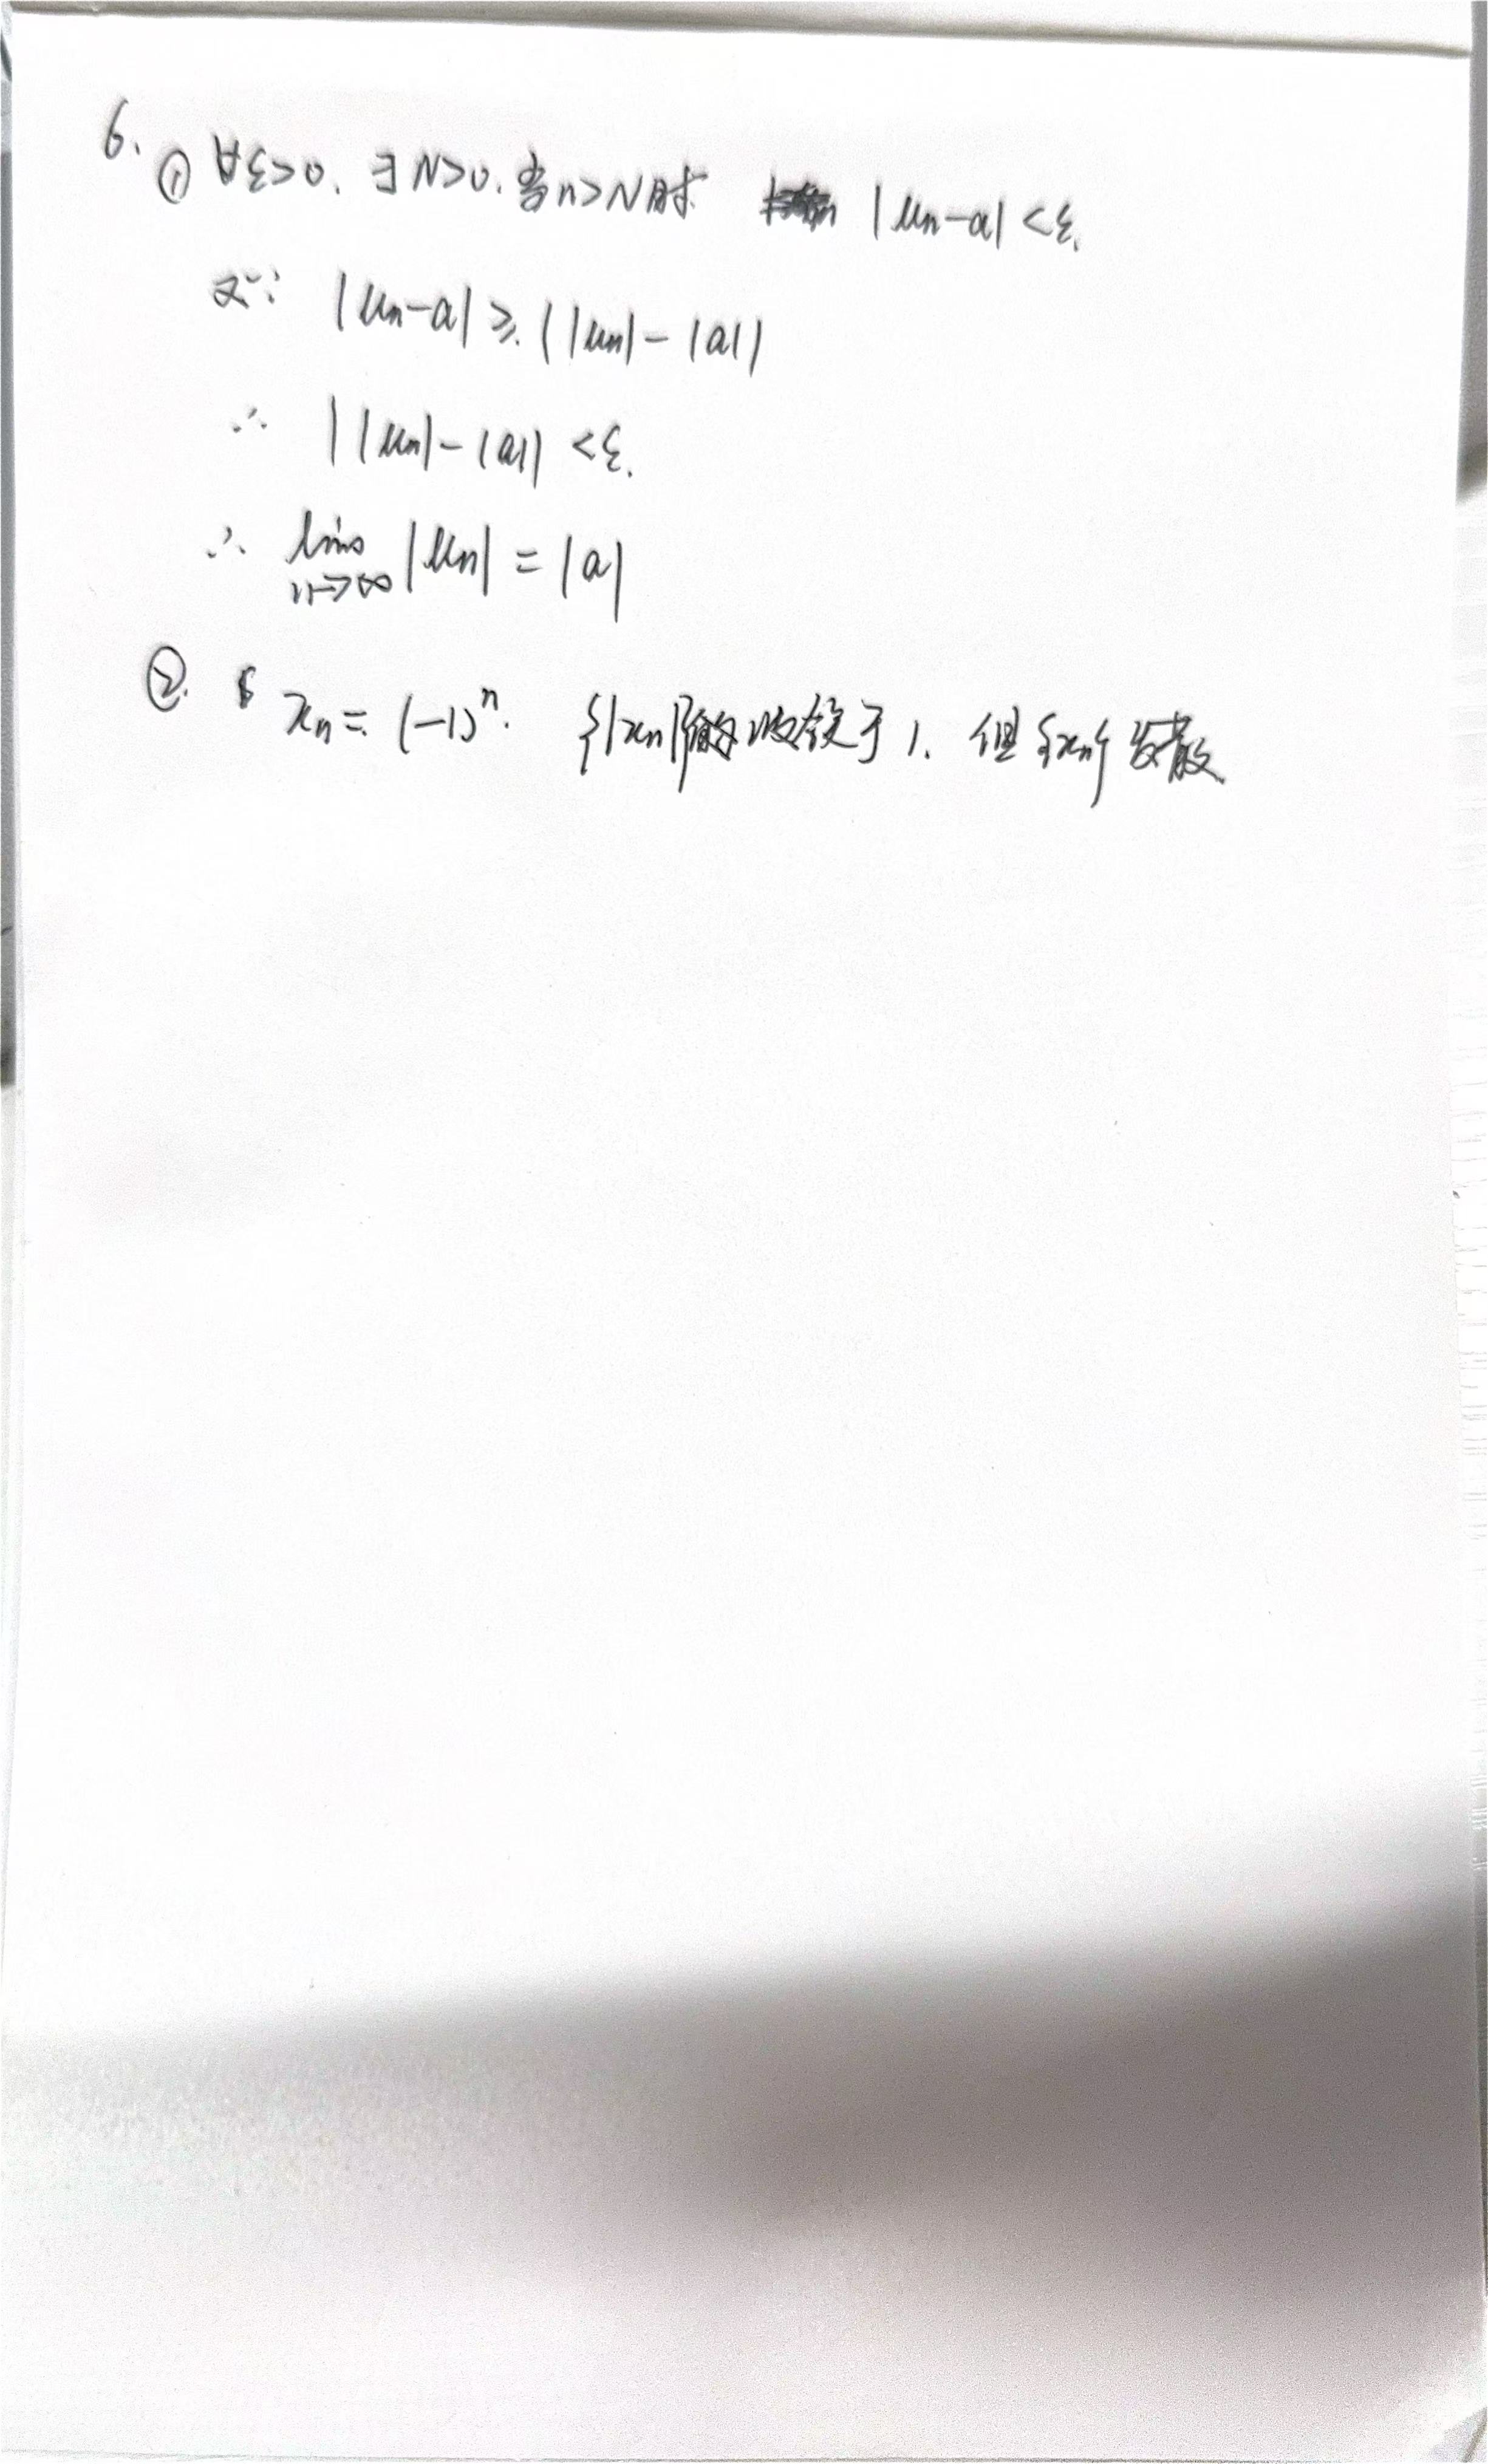 6. ① ∀ε>0. ∃N>0. 当n>N时 |un-a|<ε.
又∵ |un-a|≥||un|-|a||
∴ ||un|-|a||<ε.
∴ lim n→∞ |un|=|a|
②. xn=(-1)^n. {|xn|}收敛于1. 但{xn}发散